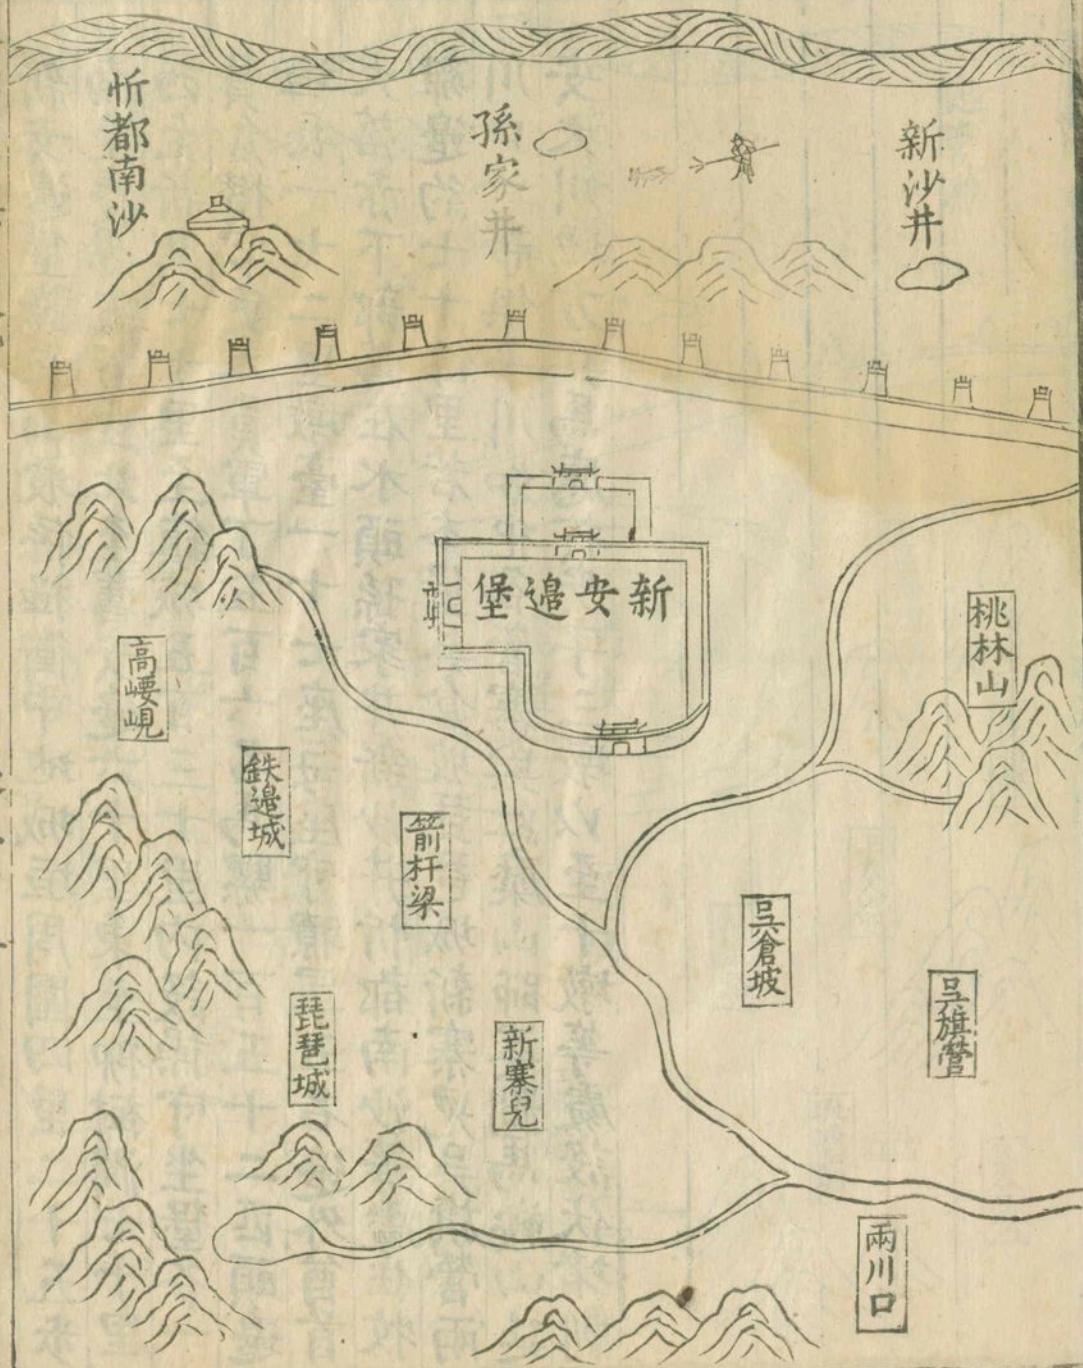 新沙井
孫家井
忻都南沙
新安邉堡
桃林山
高崾峴
鉄邉城
箭杆梁
吳倉坡
吳旗營
琵琶城
新寨兒
兩川口